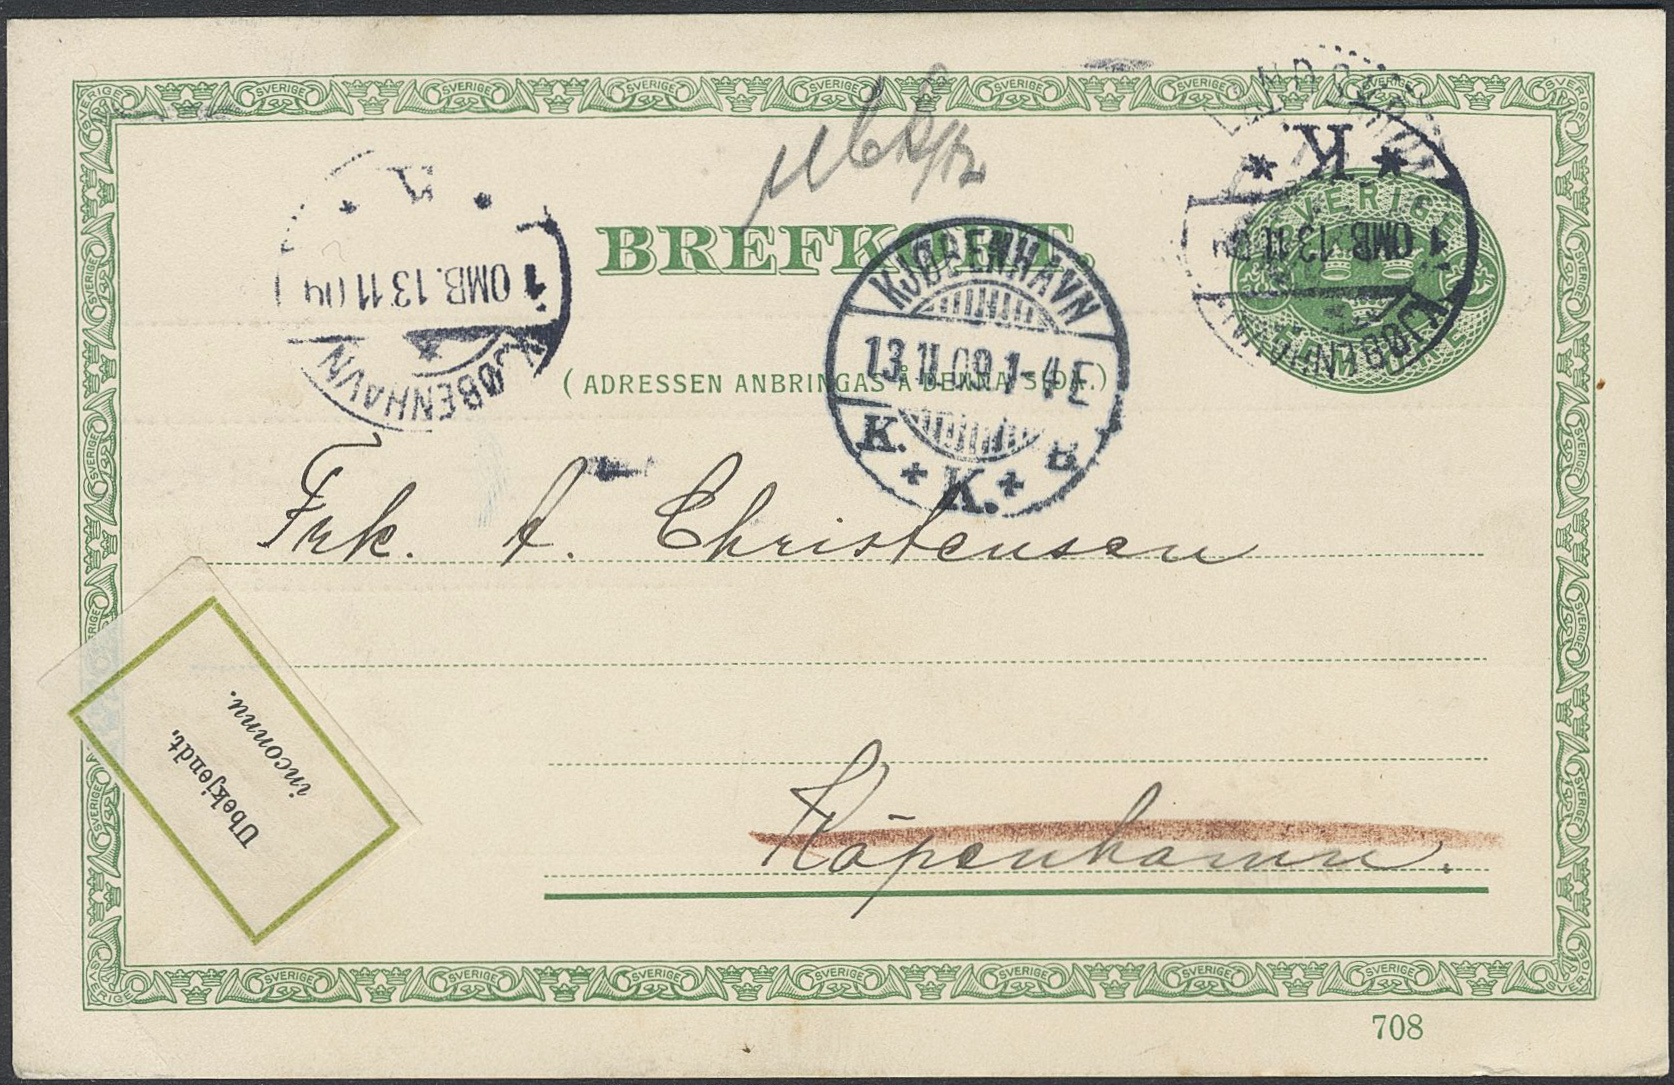 BREFKORT.
(ADRESSEN ANBRINGAS Å DENNA SIDA.)
SVERIGE
KJØBENHAVN
13.11.09.1-4E
K. B
K.
KJØBENHAVN
1 OMB. 13 11 09
KJØBENHAVN
1 OMB. 13 11 09
K.
Frk. A. Christensen
Köpenhamn.
Ubekjendt.
inconnu.
708